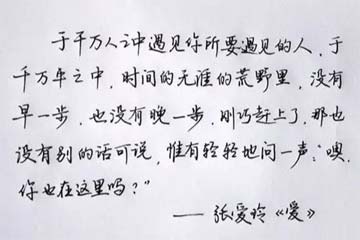 于千万人之中遇见你所要遇见的人，于
千万年之中，时间的无涯的荒野里，没有
早一步，也没有晚一步，刚巧赶上了，那也
没有别的话可说，惟有轻轻地问一声：“噢，
你也在这里吗？”
——张爱玲《爱》